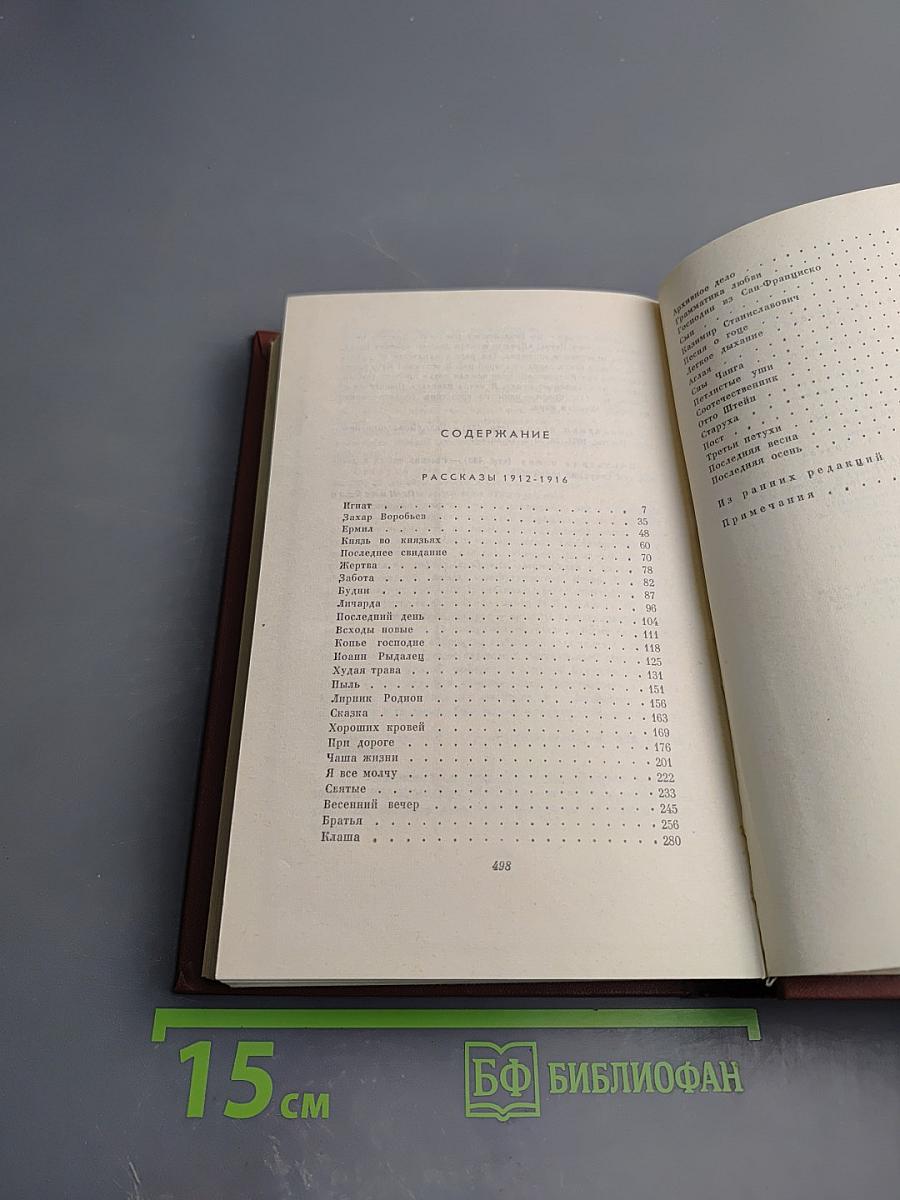 СОДЕРЖАНИЕ
РАССКАЗЫ 1912-1916
Игнат . . . . . . . . . . 7
Захар Воробьев . . . . . . . . . . 35
Ермил . . . . . . . . . . 48
Князь во князьях . . . . . . . . . . 60
Последнее свидание . . . . . . . . . . 70
Жертва . . . . . . . . . . 78
Забота . . . . . . . . . . 82
Будни . . . . . . . . . . 87
Личарда . . . . . . . . . . 96
Последний день . . . . . . . . . . 104
Всходы новые . . . . . . . . . . 111
Копье господне . . . . . . . . . . 118
Иоанн Рыдалец . . . . . . . . . . 125
Худая трава . . . . . . . . . . 131
Пыль . . . . . . . . . . 151
Лирник Родион . . . . . . . . . . 156
Сказка . . . . . . . . . . 163
Хороших кровей . . . . . . . . . . 169
При дороге . . . . . . . . . . 176
Чаша жизни . . . . . . . . . . 201
Я все молчу . . . . . . . . . . 222
Святые . . . . . . . . . . 233
Весенний вечер . . . . . . . . . . 245
Братья . . . . . . . . . . 256
Клаша . . . . . . . . . . 280
498
Архивное дело . . . . . . . . . .
Грамматика любви . . . . . . . . . .
Господин из Сан-Франциско . . . . . . . . . .
Сын . . . . . . . . . .
Казимир Станиславович . . . . . . . . . .
Песня о гоце . . . . . . . . . .
Легкое дыхание . . . . . . . . . .
Аглая . . . . . . . . . .
Сны Чанга . . . . . . . . . .
Петлистые уши . . . . . . . . . .
Соотечественник . . . . . . . . . .
Отто Штейн . . . . . . . . . .
Старуха . . . . . . . . . .
Пост . . . . . . . . . .
Третьи петухи . . . . . . . . . .
Последняя весна . . . . . . . . . .
Последняя осень . . . . . . . . . .
Из ранних редакций
Примечания . . . . .
15 СМ
БФ БИБЛИОФАН